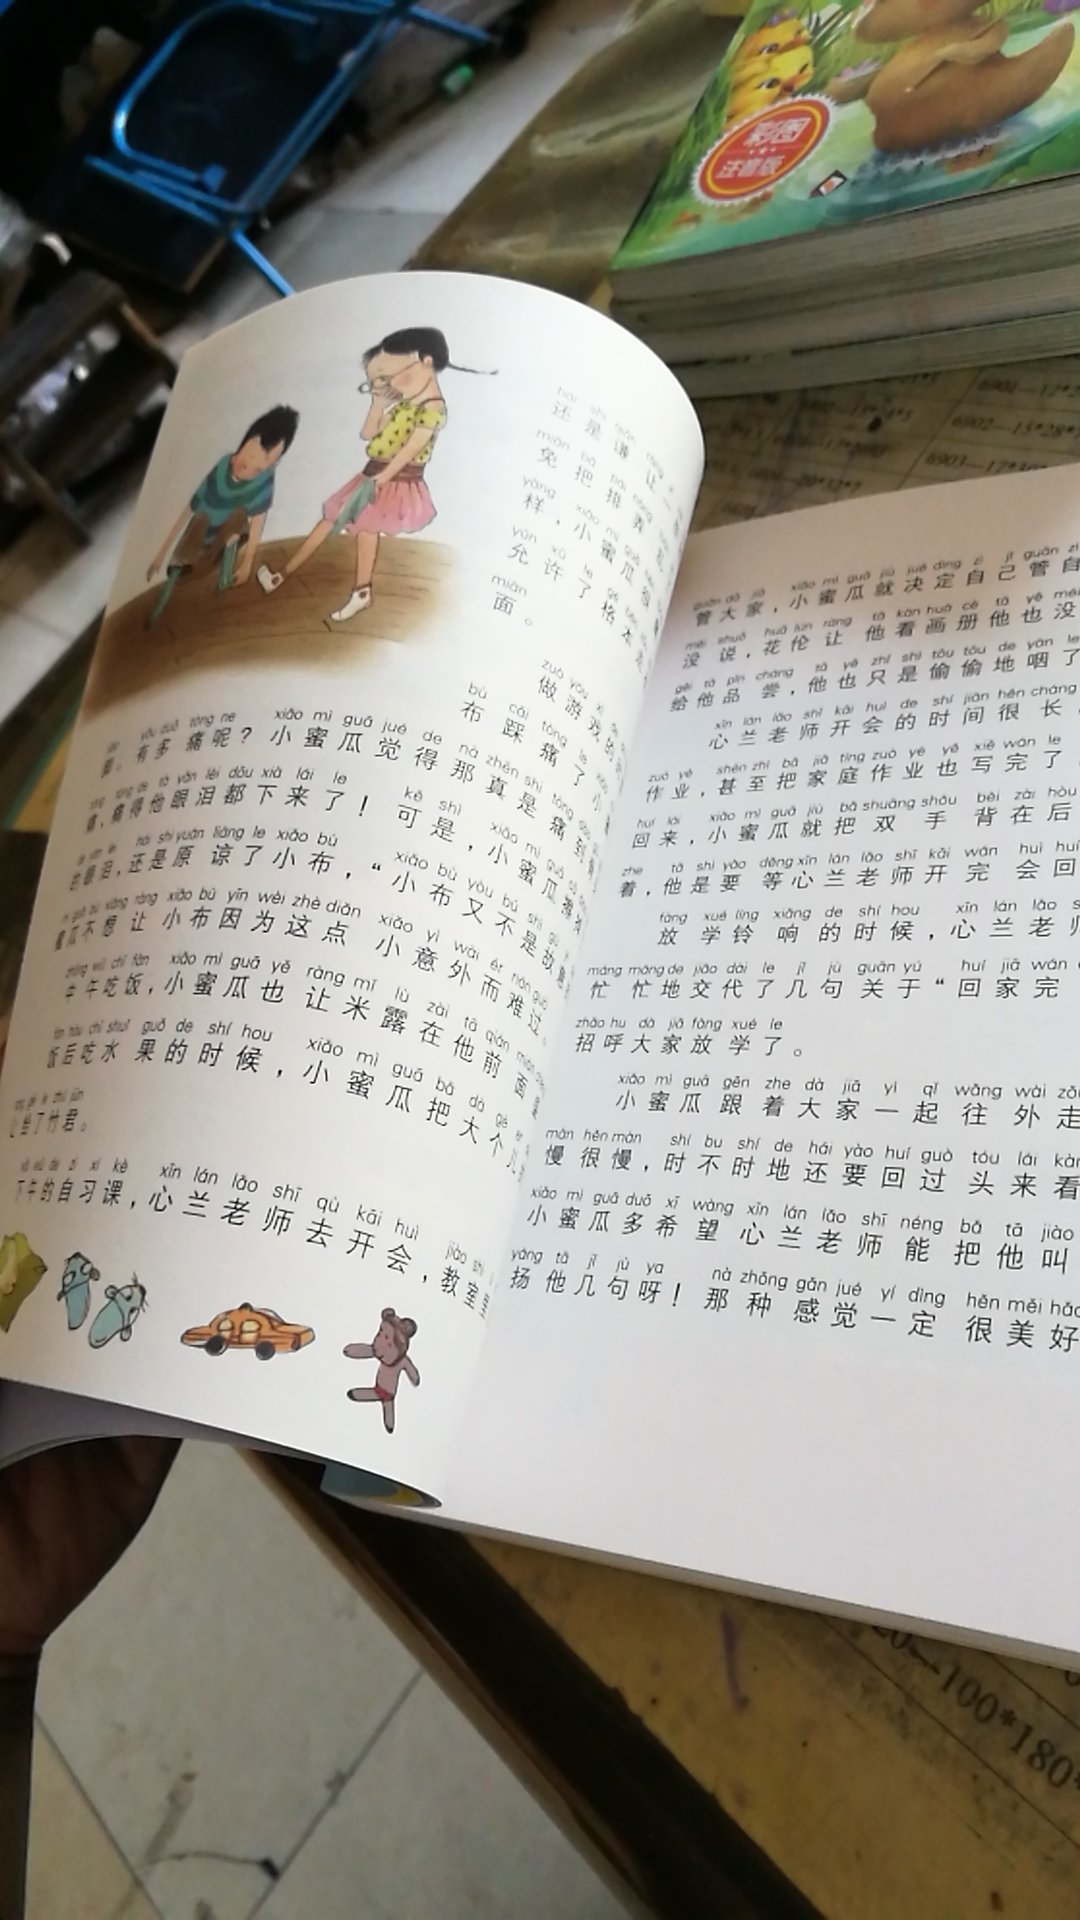 彩图
注音版
6902—15*28*7
hái shì qiān ràng
还是谦让一
miǎn bǎ pái nòng
免把排弄乱
yàng xiǎo mì guā
样，小蜜瓜
yǔn xǔ le gé běn
允许了格本
miàn
面。
zuò yóu xì de
做游戏的
bù cǎi tòng le
布踩痛了小
yǒu duō tòng ne xiǎo mì guā jué de nà zhēn shì tòng
有多痛呢？小蜜瓜觉得那真是痛到
tòng de tā yǎn lèi dōu xià lái le kě shì xiǎo mì guā
痛得他眼泪都下来了！可是，小蜜瓜擦
hái shì yuán liàng le xiǎo bù xiǎo bù yòu bú shì gù
的眼泪，还是原谅了小布，“小布又不是故
guā bù xiǎng ràng xiǎo bù yīn wèi zhè diǎn xiǎo yì wài ér nán guò
蜜瓜不想让小布因为这点小意外而难过。
zhōng wǔ chī fàn xiǎo mì guā yě ràng mǐ lù zài tā qián miàn
中午吃饭，小蜜瓜也让米露在他前面
fàn hòu chī shuǐ guǒ de shí hou xiǎo mì guā bǎ dà gè ér
饭后吃水果的时候，小蜜瓜把大个儿
ràng gěi le zhú jūn
让给了竹君。
xià wǔ de zì xí kè xīn lán lǎo shī qù kāi huì jiào shì
下午的自习课，心兰老师去开会，教室里
guǎn dà jiā xiǎo mì guā jiù jué dìng zì jǐ guǎn zì
管大家，小蜜瓜就决定自己管自
méi shuō huā lún ràng tā kàn huà cè tā yě méi
没说，花伦让他看画册他也没
gěi tā pǐn cháng tā yě zhǐ shì tōu tōu de yàn le
给他品尝，他也只是偷偷地咽了
xīn lán lǎo shī kāi huì de shí jiān hěn cháng
心兰老师开会的时间很长
zuò yè shèn zhì bǎ jiā tíng zuò yè yě xiě wán le
作业，甚至把家庭作业也写完了
huí lái xiǎo mì guā jiù bǎ shuāng shǒu bèi zài hòu
回来，小蜜瓜就把双手背在后
zhe tā shì yào děng xīn lán lǎo shī kāi wán huì huí
着，他是要等心兰老师开完会回
fàng xué líng xiǎng de shí hou xīn lán lǎo
放学铃响的时候，心兰老师
máng máng de jiāo dài le jǐ jù guān yú huí jiā wán
忙忙地交代了几句关于“回家完
zhāo hu dà jiā fàng xué le
招呼大家放学了。
xiǎo mì guā gēn zhe dà jiā yì qǐ wǎng wài zǒu
小蜜瓜跟着大家一起往外走
màn hěn màn shí bu shí de hái yào huí guò tóu lái kàn
慢很慢，时不时地还要回过头来看
xiǎo mì guā duō xī wàng xīn lán lǎo shī néng bǎ tā jiào
小蜜瓜多希望心兰老师能把他叫
yáng tā jǐ jù ya nà zhǒng gǎn jué yí dìng hěn měi hǎo
扬他几句呀！那种感觉一定很美好